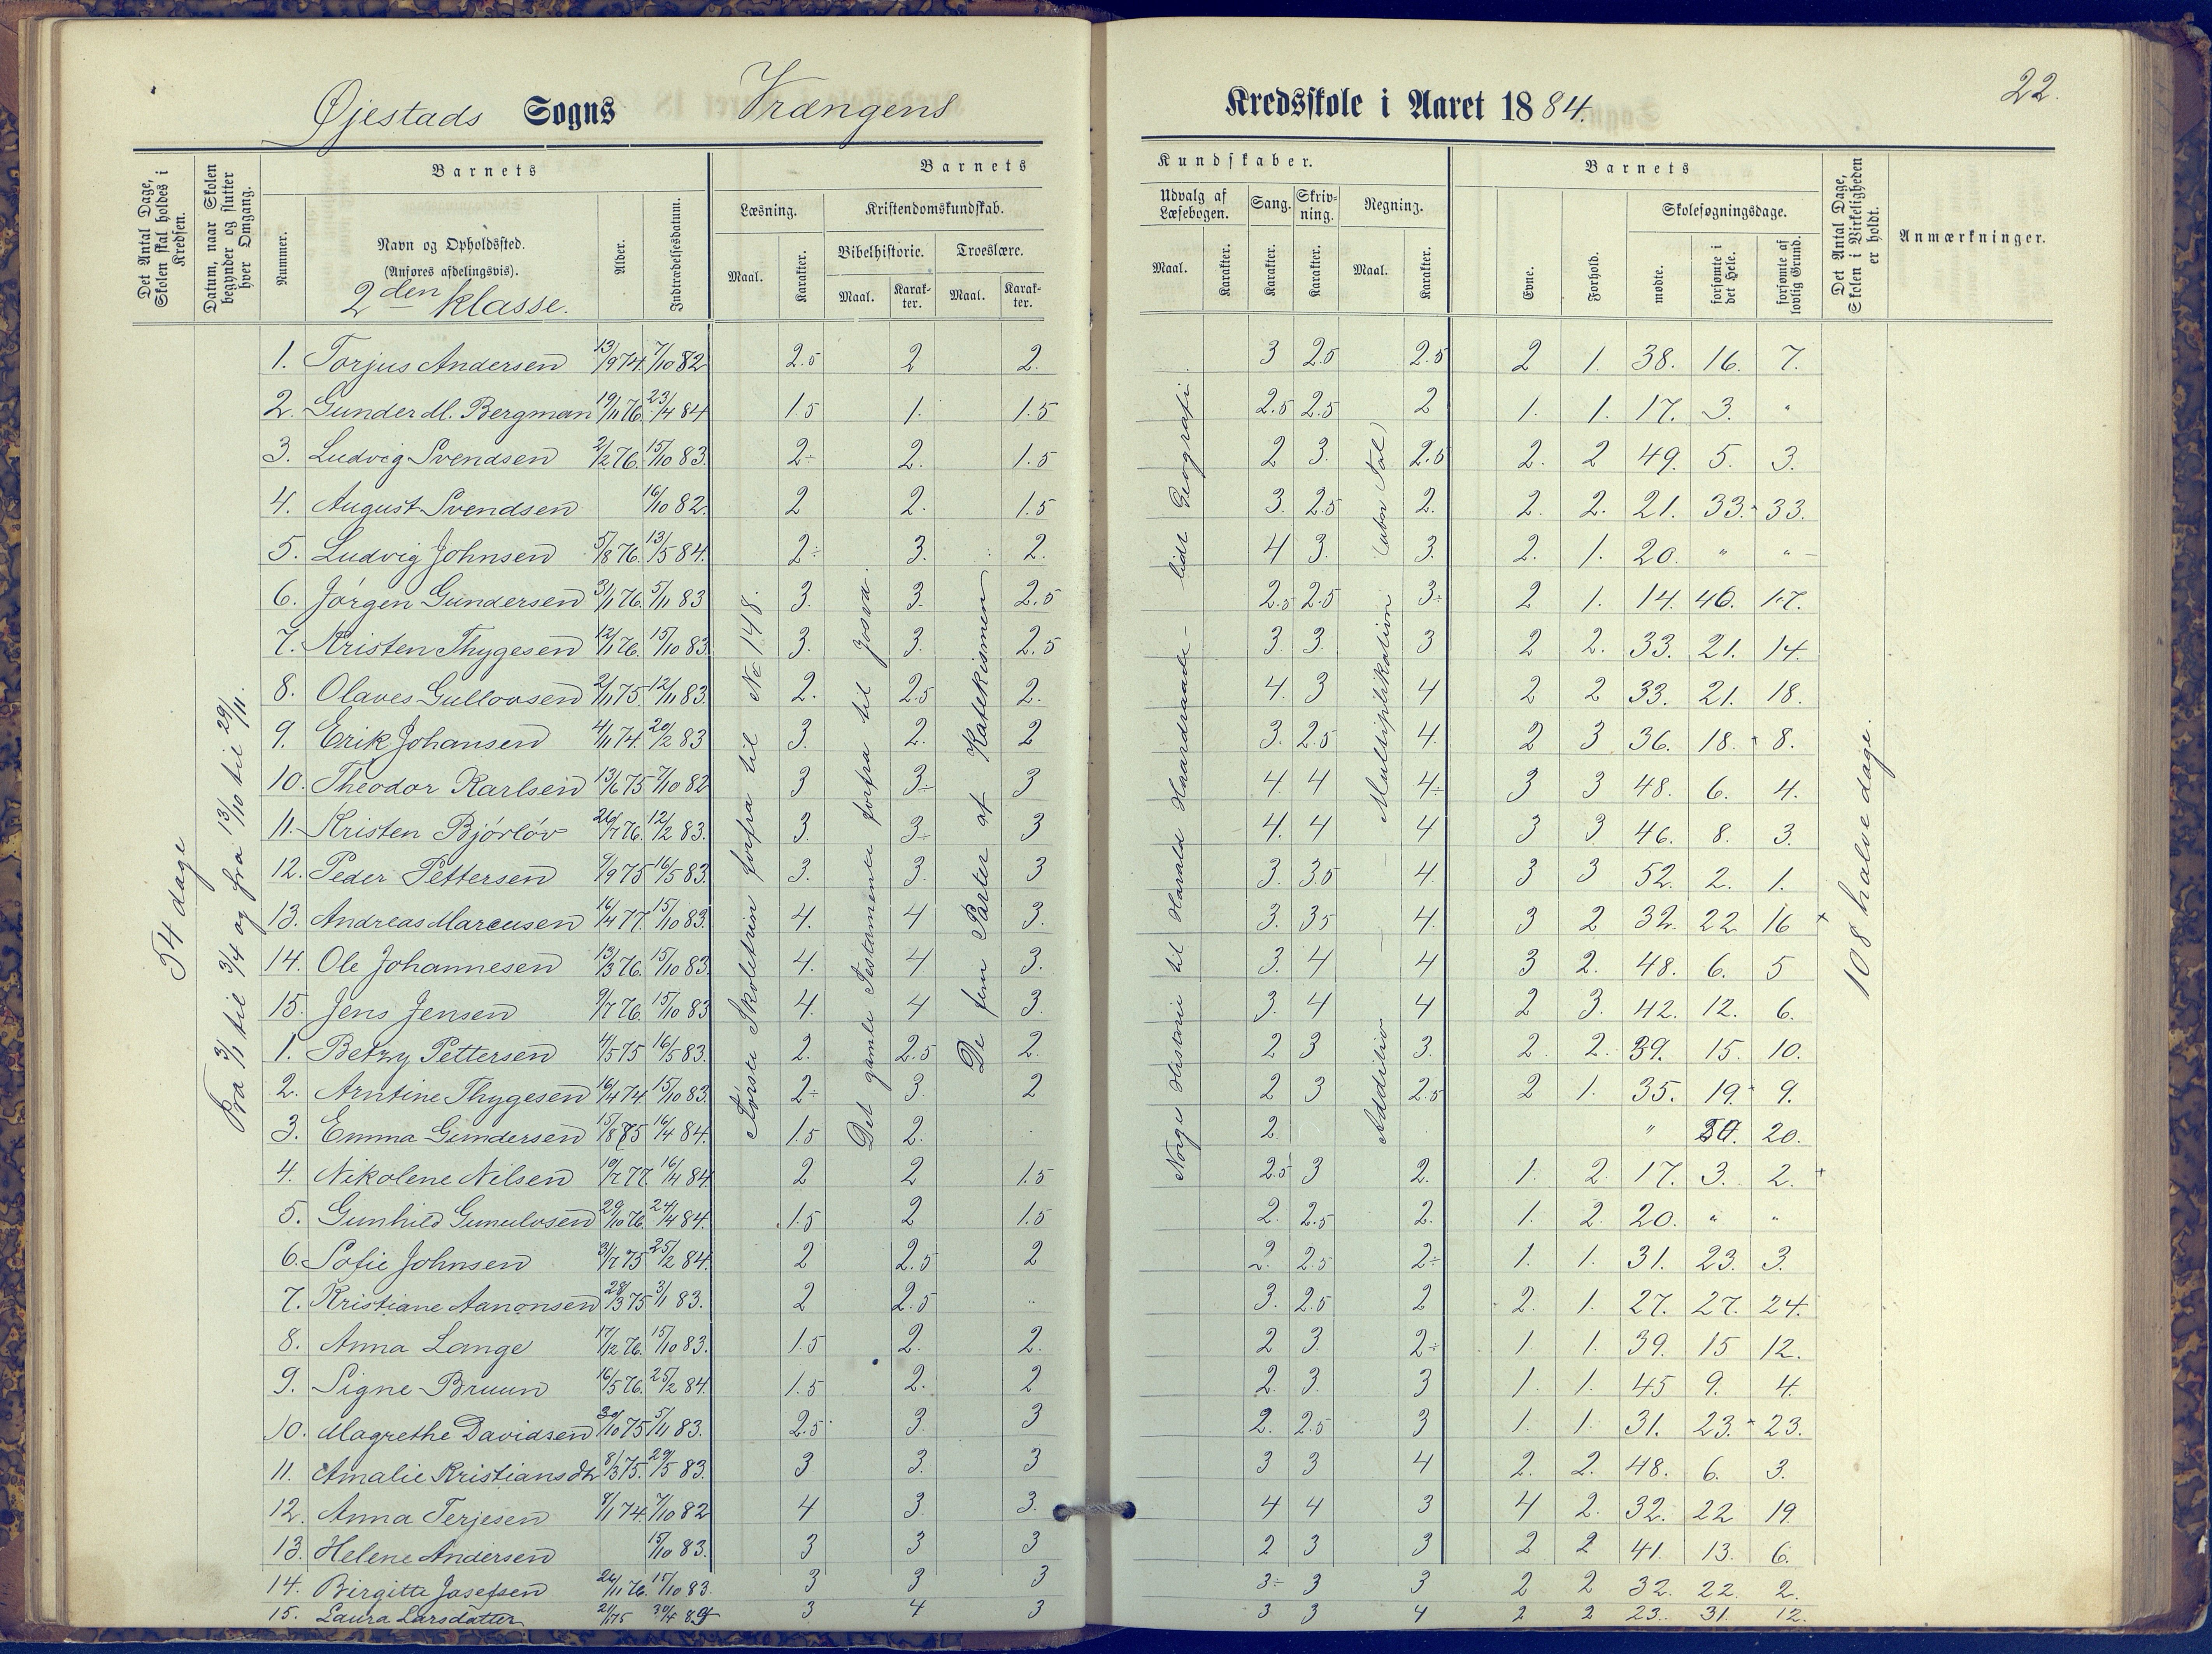 22.
Øjestads Sogns Vrængens Kredsskole i Aaret 1884.
Det Antal Dage, Skolen skal holdes i Kredsen.
Datum, naar Skolen begynder og slutter hver Omgang.
Barnets
Nummer.
Navn og Opholdssted.
(Anføres afdelingsvis).
2den klasse.
Alder.
Indtrædelsesdatum.
Barnets Kundskaber.
Læsning. Maal. Karakter.
Kristendomskundskab.
Bibelhistorie. Maal. Karakter.
Troeslære. Maal. Karakter.
Udvalg af Læsebogen. Maal. Karakter.
Sang. Karakter.
Skrivning. Karakter.
Regning. Maal. Karakter.
Barnets
Evne. Forhold.
Skolesøgningsdage.
mødte. forsømte i det Hele. forsømte af lovlig Grund.
Det Antal Dage, Skolen i Virkeligheden er holdt.
Anmærkninger.
54 dage
Fra 3/1 til 3/4 og fra 13/10 til 29/11.
Første Skoletrin forfra til No 148.
Det gamle Testamente forfra til Josva.
De fem Parter af Katekismen
Norges Historie til Harald Haardraade – lidt Geografi.
Addition – – Multiplikation (ubn Tal)
108 halve dage.
1. Torjus Andersen 13/9 74. 7/10 82 2.5 2 2. 3 2.5 2.5 2 1. 38. 16. 7.
2. Gunder M. Bergman 19/11 76. 23/4 84 1.5 1. 1.5 2.5 2.5 2 1. 1. 17. 3. "
3. Ludvig Svendsen 2/2 76. 15/10 83. 2÷ 2. 1.5 2 3. 2.5 2. 2 49. 5. 3.
4. August Svendsen 16/10 82. 2 2. 1.5 3. 2.5 2. 2. 2. 21. 33. 33.
5. Ludvig Johnsen 5/8 76. 13/5 84. 2÷ 3. 2. 4 3. 3. 2. 1. 20. " "
6. Jörgen Gundersen 3/1 76. 5/11 83 3. 3. 2.5 2.5 2.5 3÷ 2 1. 14. 40. 17.
7. Kristen Thygesen 12/1 76. 15/10 83. 3. 3. 2.5 3. 3. 3 2 2. 33. 21. 14.
8. Olaves Gullovsen 2/11 75. 12/11 83. 2. 2.5 2. 4. 3 4 2 2 33. 21. 18.
9. Erik Johansen 4/11 74. 20/2 83 3. 2. 2 3. 2.5 4. 2 3 36. 18. 8.
10. Theodor Karlsen 13/6 75 7/10 82 3 3÷ 3 4. 4 4÷ 3 3 48. 6. 4.
11. Kristen Bjórlöv 26/7 76. 12/2 83. 3. 3÷ 3 4. 4 4 3 3 46. 8. 3.
12. Peder Pettersen 9/9 75 16/5 83. 3. 3. 3 3. 3.5 4. 3 3 52. 2. 1.
13. Andreas Marcusen 16/4 77. 15/10 83. 4. 4 3. 3. 3.5 4. 3 2 32. 22 16 +
14. Ole Johannesen 13/3 76. 15/10 83. 4. 4. 3. 3. 4 4 3 2. 48. 6. 5
15. Jens Jensen 9/7 76. 15/10 83 4. 4 3. 3. 4 4 2 3. 42. 12. 6.
1. Betzy Pettersen 4/5 75 16/5 83. 2. 2.5 2. 2 3 3. 2. 2. 39. 15. 10.
2. Arntine Thygesen 16/4 74. 15/10 83. 2÷ 3. 2 2 3 2.5 2 1. 35. 19. 9.
3. Emma Gundersen 15/8 75 16/4 84. 1.5 2. 2. " 20.
4. Nikolene Nilsen 10/7 77. 16/4 84. 2 2 1.5 2.5 3 2. 1. 2 17. 3. 2. +
5. Gunhild 29/10 76. 24/4 84. 1.5 2 1.5 2. 2.5 2. 1. 2. 20. " "
6. Sofie Johnsen 3/7 75 25/2 84. 2 2.5 2 2. 2.5 2÷ 1. 1. 31. 23. 3.
7. Kristiane Aanonsen 28/3 75 3/1 83. 2 2.5 " 3. 2.5 2 2. 1. 27. 27. 24.
8. Anna Lange 17/12 76. 15/10 83. 1.5 2. 2. 2 3. 2÷ 1. 1. 39. 15 12.
9. Signe Bruun 16/5 76. 25/2 84. 1.5 2. 2 2. 3. 3 1. 1. 45 9. 4.
10. Magrethe Davidsen 30/10 75 5/11 83. 2.5 3. 3 2. 2.5 3 1. 1. 31. 23. 23.
11. Amalie Kristiansdtr 8/3 75. 29/5 83. 3 3. 3 3 3 4 2. 2. 48. 6. 3.
12. Anna Terjesen 8/1 74. 7/10 82 4 3. 3. 4 4 3 4 2. 32. 22 19
13. Helene Andersen 15/10 83. 3 3 3 2 3 3 2 2 41. 13. 6.
14. Birgitte Josefsen 26/11 76. 17/10 83. 3 3 3 3÷ 3 3 2 2 32. 22. 2.
15. Laura Larsdatter 2/1 75 30/4 84 3 4 3 3 3 4 2 2 23. 31. 12.